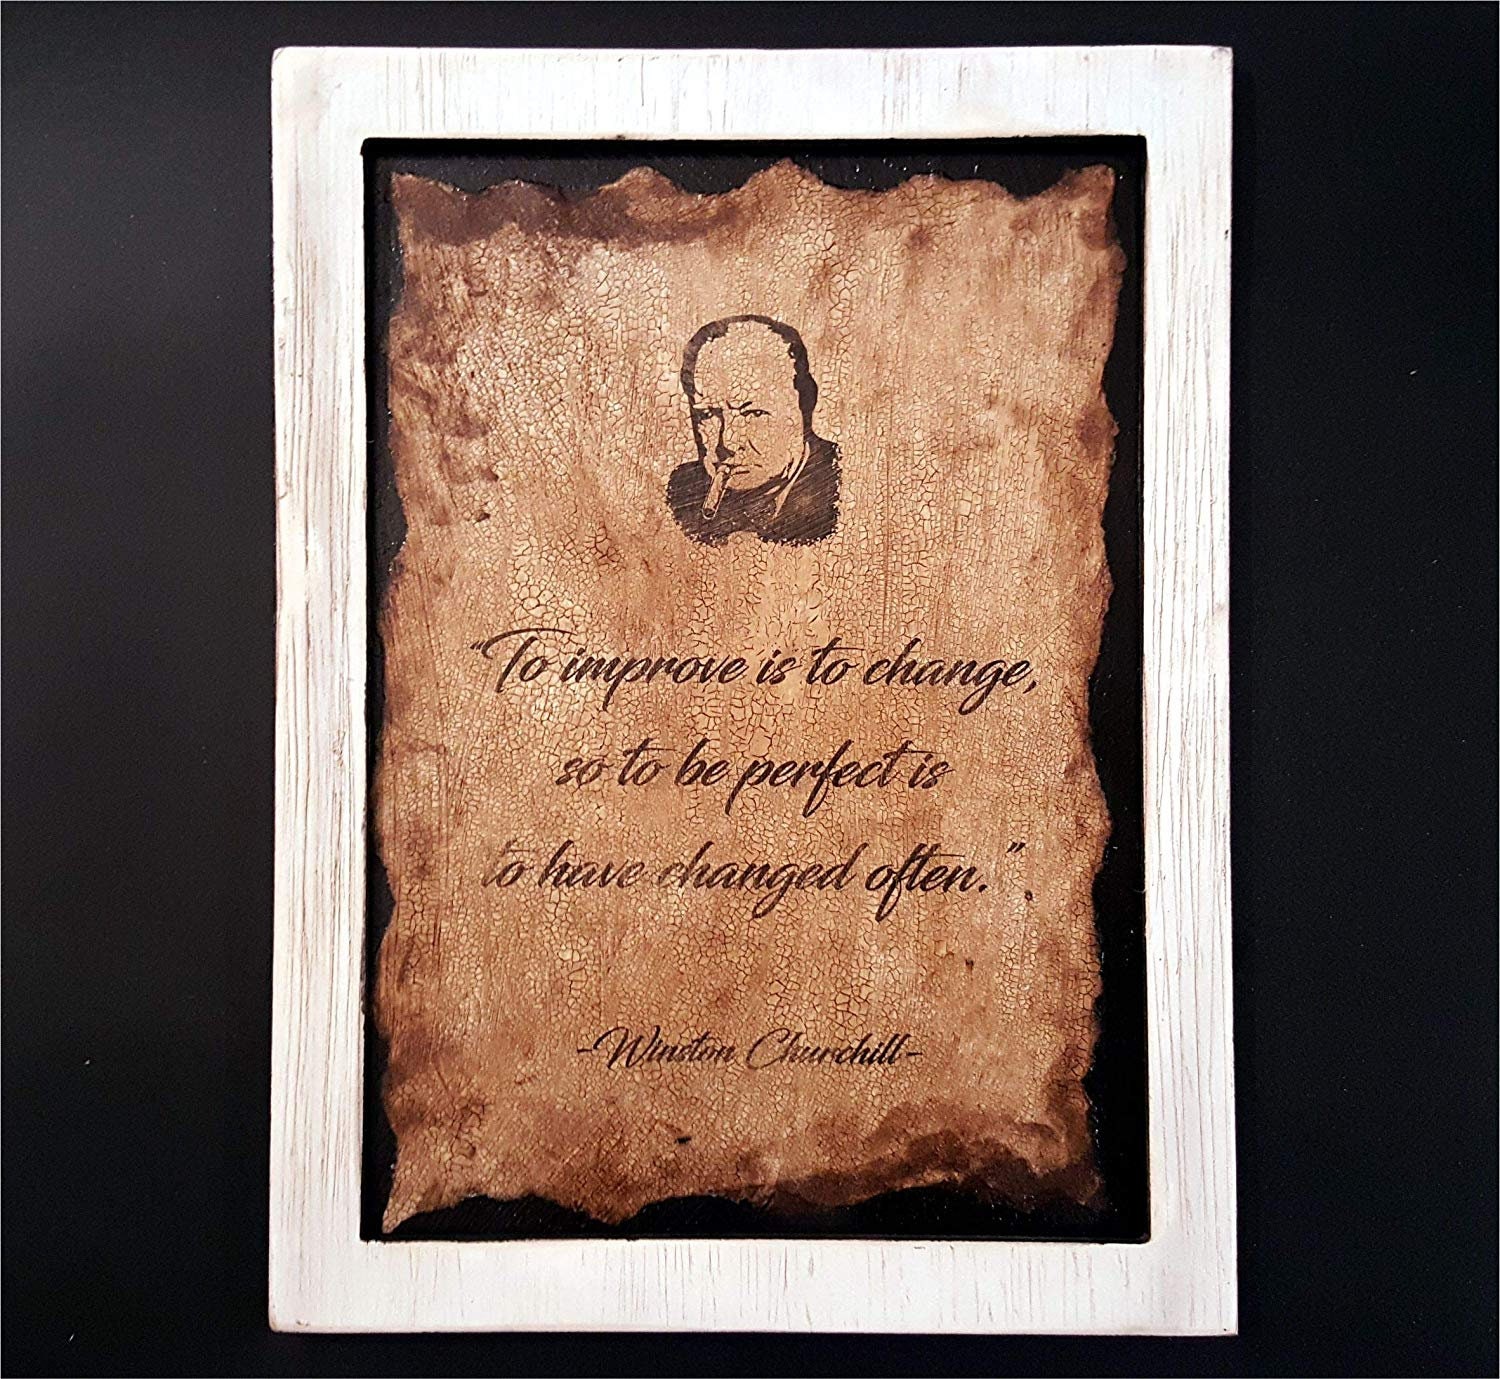 "To improve is to change,
so to be perfect is
to have changed often."
-Winston Churchill-